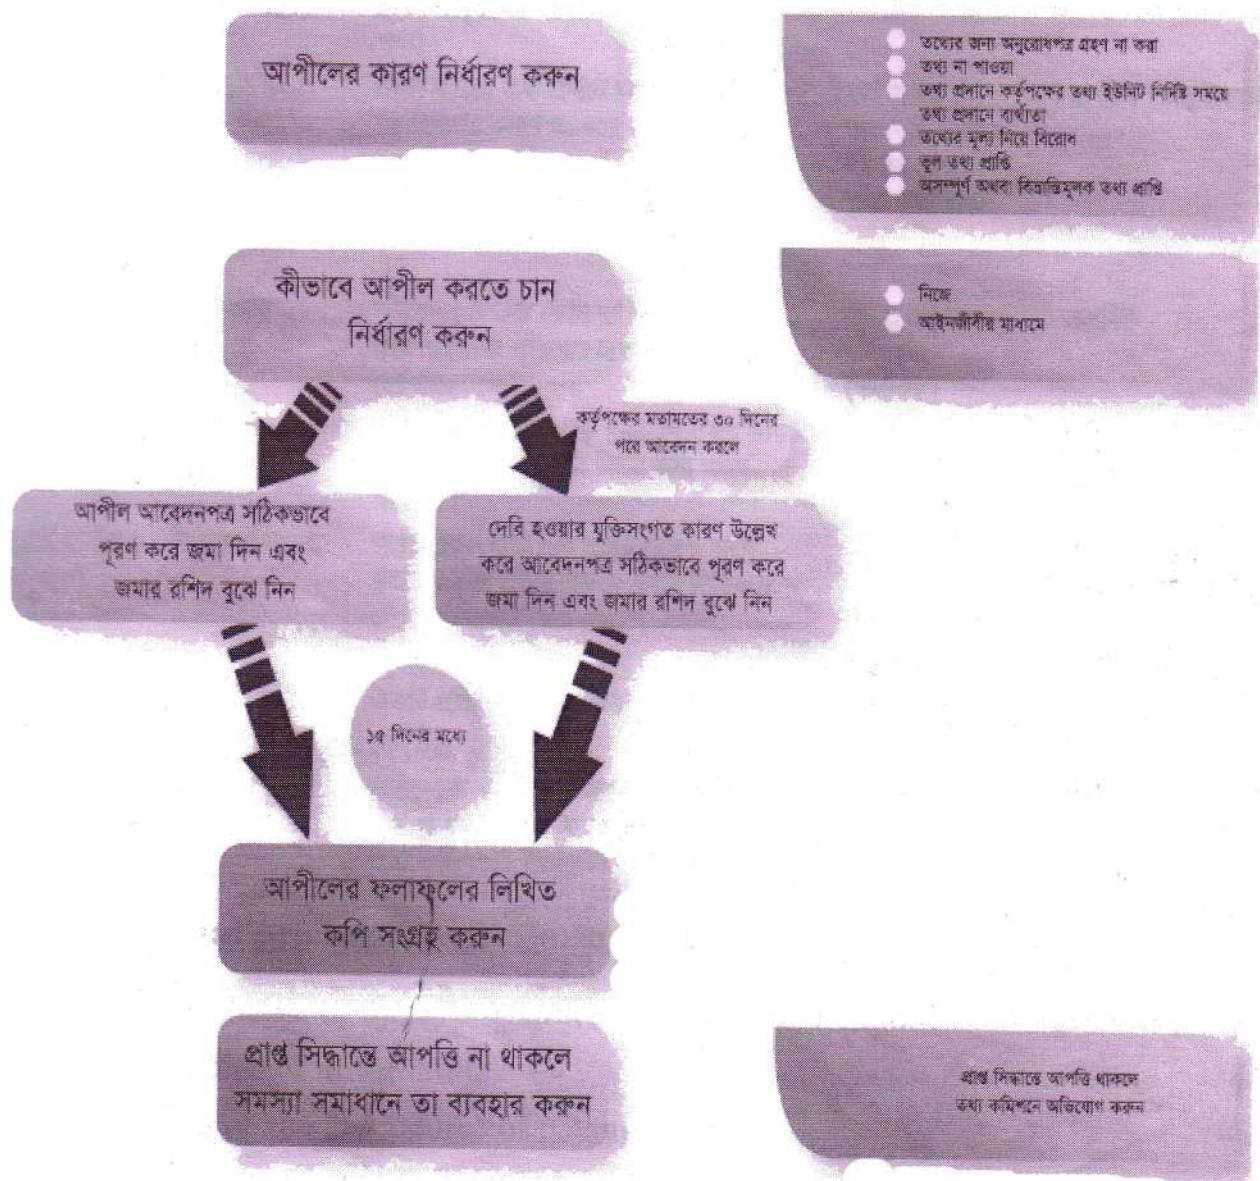 আপীলের কারণ নির্ধারণ করুন
তথ্যের জন্য অনুরোধপত্র গ্রহণ না করা
তথ্য না পাওয়া
তথ্য প্রদানে কর্তৃপক্ষের তথ্য ইউনিট নির্দিষ্ট সময়ে
তথ্য প্রদানে ব্যর্থতা
তথ্যের মূল্য নিয়ে বিরোধ
ভুল তথ্য প্রাপ্তি
অসম্পূর্ণ অথবা বিভ্রান্তিমূলক তথ্য প্রাপ্তি
কীভাবে আপীল করতে চান
নির্ধারণ করুন
নিজে
আইনজীবীর মাধ্যমে
কর্তৃপক্ষের মতামতের ৩০ দিনের
পরে আবেদন করলে
আপীল আবেদনপত্র সঠিকভাবে
পূরণ করে জমা দিন এবং
জমার রশিদ বুঝে নিন
দেরি হওয়ার যুক্তিসংগত কারণ উল্লেখ
করে আবেদনপত্র সঠিকভাবে পূরণ করে
জমা দিন এবং জমার রশিদ বুঝে নিন
১৫ দিনের মধ্যে
আপীলের ফলাফলের লিখিত
কপি সংগ্রহ করুন
প্রাপ্ত সিদ্ধান্তে আপত্তি না থাকলে
সমস্যা সমাধানে তা ব্যবহার করুন
প্রাপ্ত সিদ্ধান্তে আপত্তি থাকলে
তথ্য কমিশনে অভিযোগ করুন